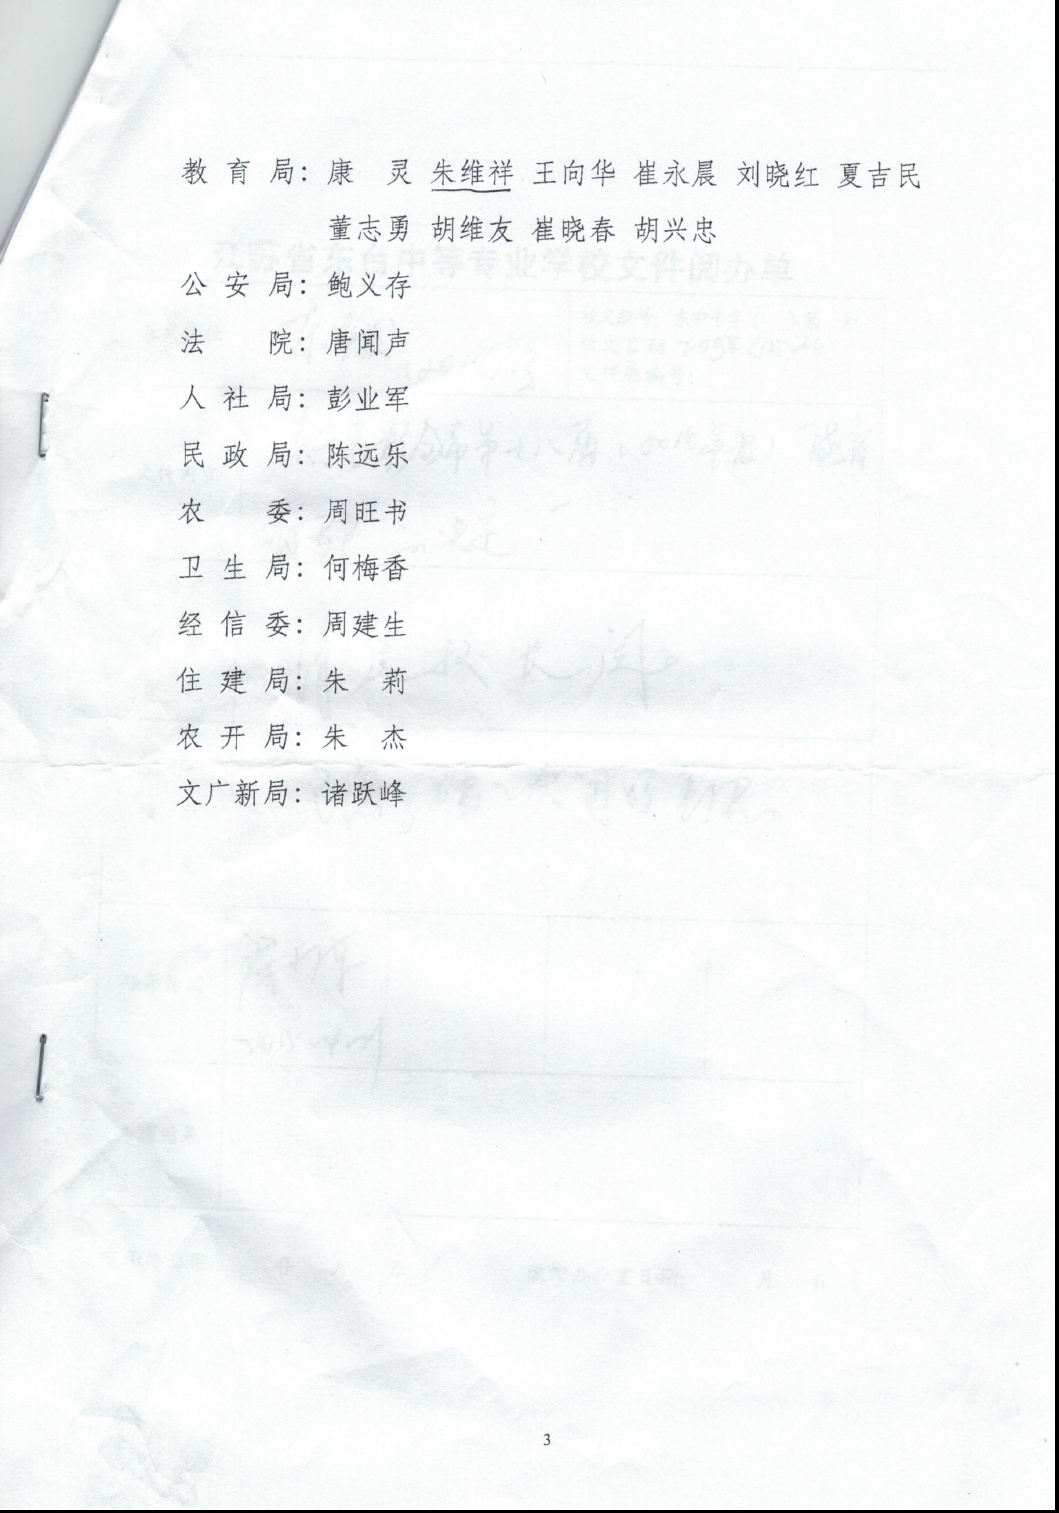 教育局：康　灵 朱维祥 王向华 崔永晨 刘晓红 夏吉民
董志勇 胡维友 崔晓春 胡兴忠
江苏省东台中等专业学校文件阅办单
公安局：鲍义存
法　　院：唐闻声
人社局：彭业军
民政局：陈远乐
农　　委：周旺书
卫生局：何梅香
经信委：周建生
住建局：朱　莉
农开局：朱　杰
文广新局：诸跃峰
3